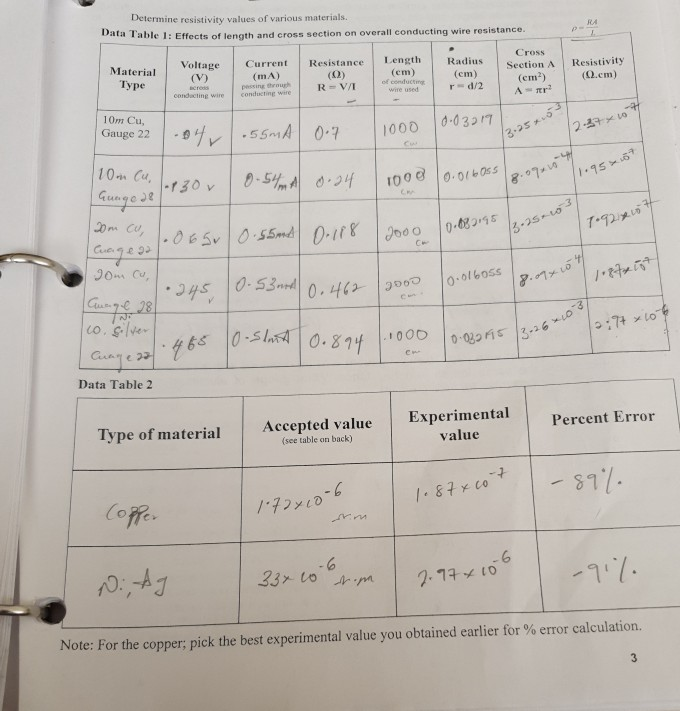 Determine resistivity values of various materials.
Data Table 1: Effects of length and cross section on overall conducting wire resistance.
ρ = RA/L
Material Type
Voltage (V) across conducting wire
Current (mA) passing through conducting wire
Resistance (Ω) R = V/I
Length (cm) of conducting wire used
Radius (cm) r = d/2
Cross Section A (cm²) A = πr²
Resistivity (Ω.cm)
10m Cu, Gauge 22
.04 v
.55mA
0.7
1000 cm
0.03217
3.25 × 10^-3
2.37 × 10^-7
10m Cu, Guage 28
.130 v
0.54mA
0.24
1000 cm
0.016055
8.09 × 10^-4
1.95 × 10^-7
20m Cu, Guage 22
.065v
0.55mA
0.118
2000 cm
3.25 × 10^-3
1.92 × 10^-7
20m Cu, Guage 28
.245 v
0.53mA
0.462
2000 cm
0.016055
8.09 × 10^-4
1.87 × 10^-7
10. Silver Ni Guage 22
.465
0.51mA
0.894
1000 cm
3.26 × 10^-3
2.97 × 10^-6
Data Table 2
Type of material
Accepted value
(see table on back)
Experimental value
Percent Error
Copper
1.72×10^-6 Ω.m
1.87 × 10^-7
- 89%.
Ni, Ag
33× 10^-6 Ω.m
2.97 × 10^-6
-91%.
Note: For the copper; pick the best experimental value you obtained earlier for % error calculation.
3